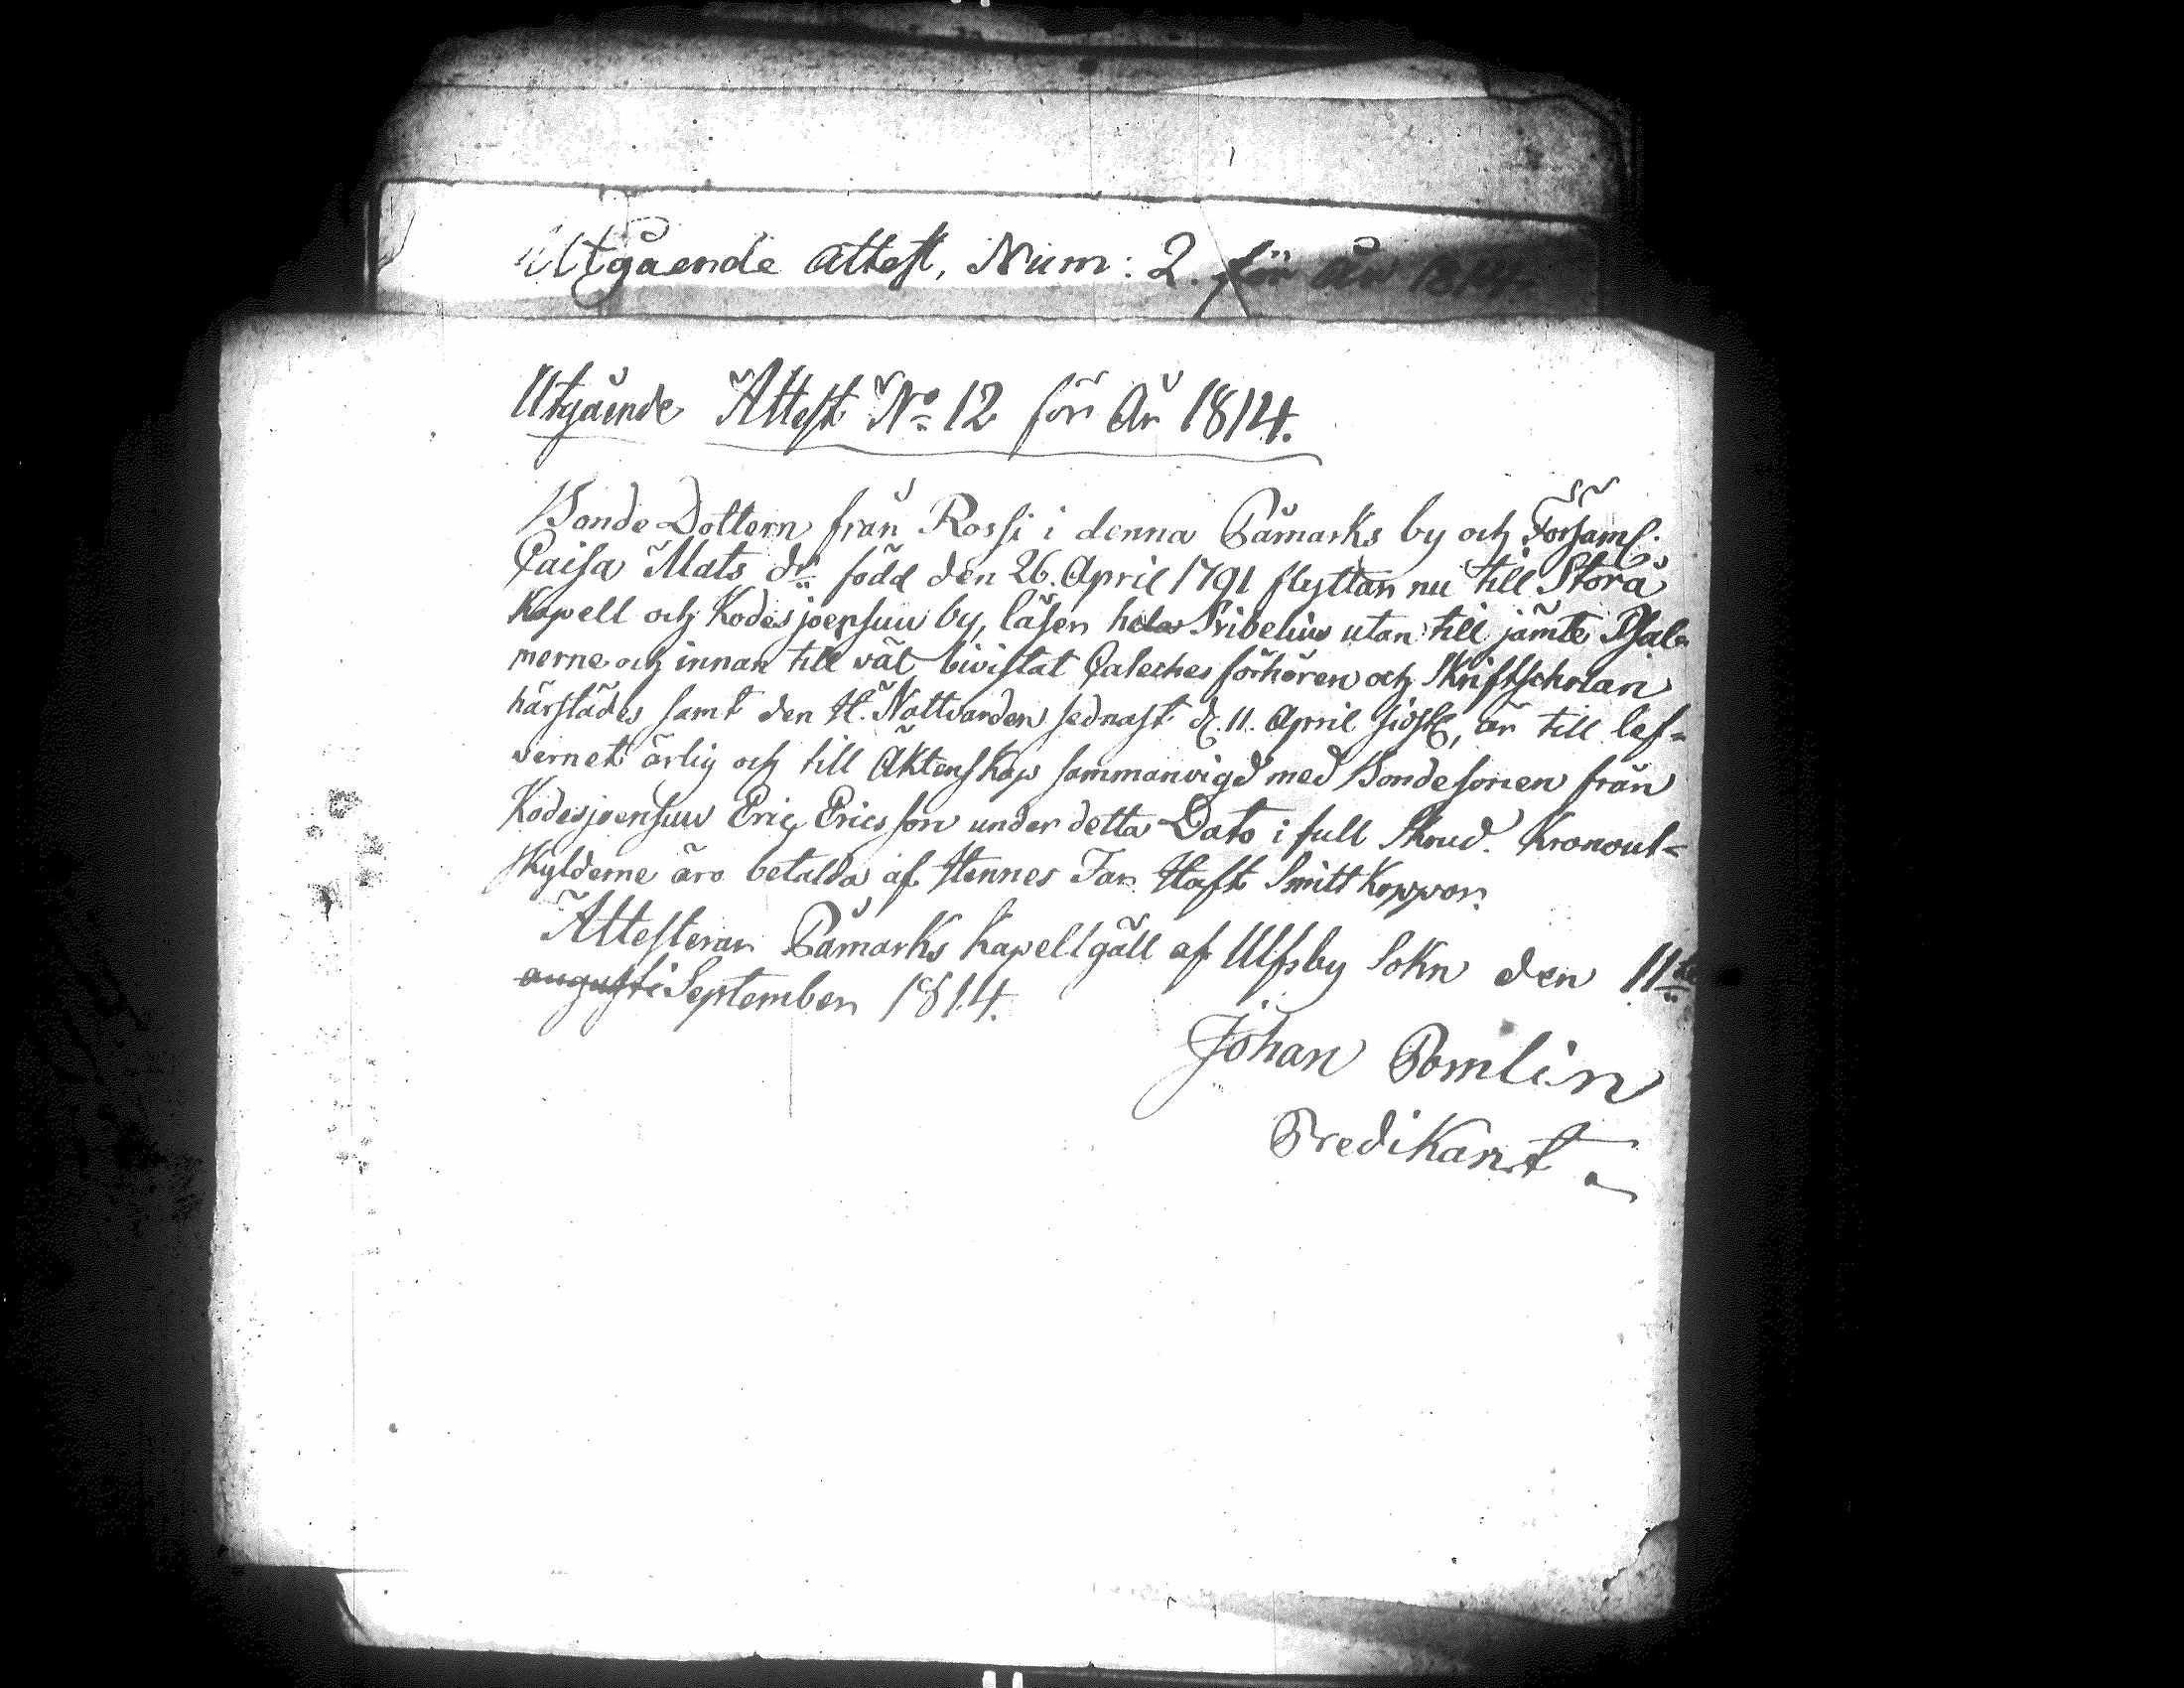 Utgående attest, Num: 2. för år 1814.
Utgående Attest No 12 för År 1814.
Bonde Dottern från Rossi i denna Påmarks by och Församl.
Caisa Mats dr. född den 26. April 1791 flyttar nu till Storå
Kapell och Kodesjoensuu by, läser hela Svibelius utan till jämte Psal-
merne och innan till väl bivistat Cateches förhören och Skriftscholan
härstädes samt den H. Nattvarden sednast d. 11. April sidstl, är till lef-
vernet ärlig och till Äktenskap sammanvigd med Bondesonen från
Kodesjoensuu Eric Ericsson under detta Dato i full Skrud. Kronout-
skylderne äro betalda af Hennes Far. Haft Smitt Koppor.
Attesterar Påmarks Kapellgäll af Ulfsby Sokn den 11te
augusti September 1814.
Johan Pomlin
Predikant